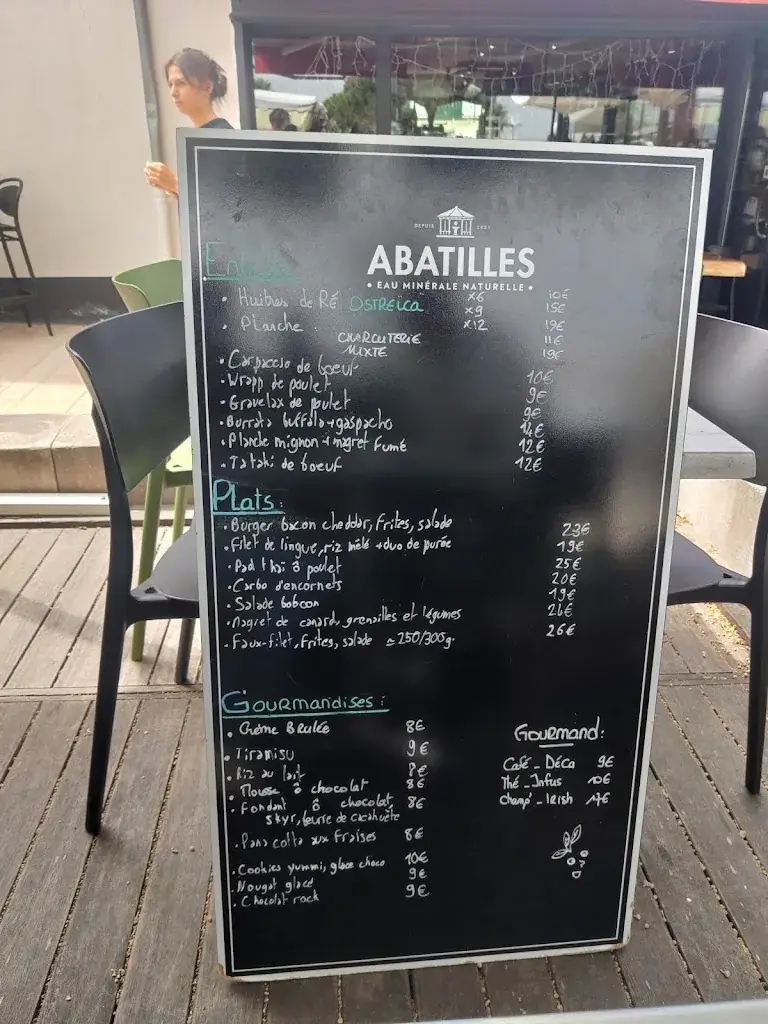 DEPUIS
ABATILLES
• EAU MINÉRALE NATURELLE •
Entrées
• Huîtres de RÉ OSTREICA x6 10€
x9 15€
• Planche : x12 19€
CHARCUTERIE 11€
MIXTE 19€
• Carpaccio de boeuf 10€
• Wrapp de poulet 9€
• Gravelax de poulet 9€
• Burrata buffala + gaspacho 14€
• Planche mignon + magret fumé 12€
• Tataki de boeuf 12€
Plats:
• Burger bacon cheddar, frites, salade 23€
• Filet de lingue, riz mêlé + duo de purée 19€
• Pad thaï ô poulet 25€
• Carbo d'encornets 20€
• Salade baboon 19€
• Magret de canard, grenailles et légumes 26€
• Faux-filet, frites, salade ≃ 250/300g. 26€
Gourmandises :
• Crème Brulée 8€
• Tiramisu 9€
• Riz au lait 8€
• Mousse ô chocolat 8€
• Fondant ô chocolat, 8€
skyr, beurre de cacahuète
• Pana cotta aux fraises 8€
• Cookies yummi, glace choco 10€
• Nougat glacé 9€
• Chocolat rock 9€
Gourmand:
Café - Déca 9€
Thé - Infus 10€
Champ' - Irish 17€